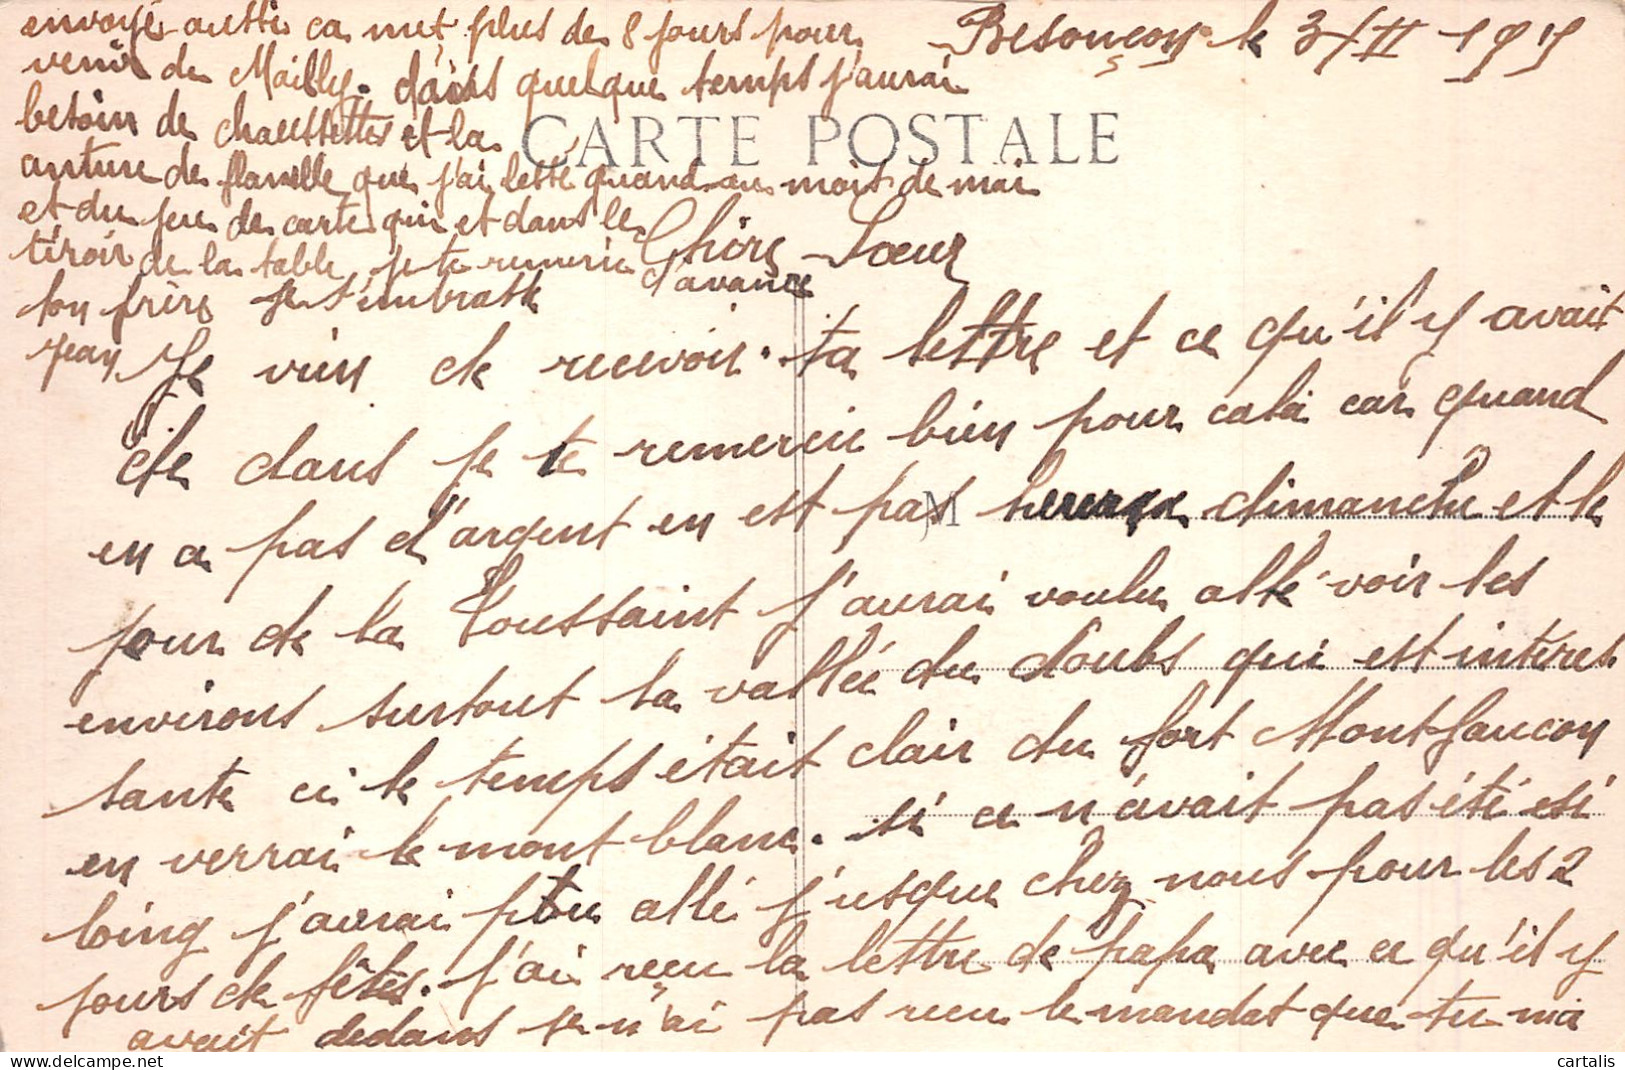 Besançon le 3/II 1915
CARTE POSTALE
Chère Sœur
Je vien de recevoir ta lettre et ce qu'il y avait
de dans je te remercie bien pour cela car quand
en a pas d'argent en est pas hereux dimanche et le
jour de la Toussaint j'aurai voulu allé voir les
environs surtout la vallée du doubs qui est interes
sante ci le temps était clair du fort Montfaucon
en verrai le mont blanc. si ce n'avait pas été si
loing j'aurai ptu allé j'usque chez nous pour les 2
jours de fêtes. j'ai reçu la lettre de papa avec ce qu'il y
avait dedans je n'ai pas recu le mandat que tu m'a
envoyé aussi ca met plus de 8 jours pour
venir de Mailly. dans quelque temps j'aurai
besoin de chaussettes et la
cinture de flanelle que j'ai lessé quand au mois de mai
et du jeu de carte qui et dans le
tiroir de la table je te remercie
d'avance
ton frère je t'embrasse
Jean
JM
cartalis